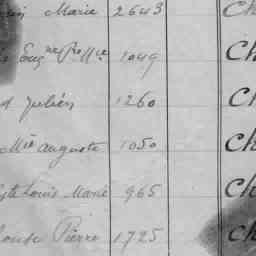 Marie 2643 Ch
Eugne 1049 Ch
Julien 1260 Ch
Mie auguste 1050 Ch
Louis Marie 965 Ch
Pierre 1725 Ch